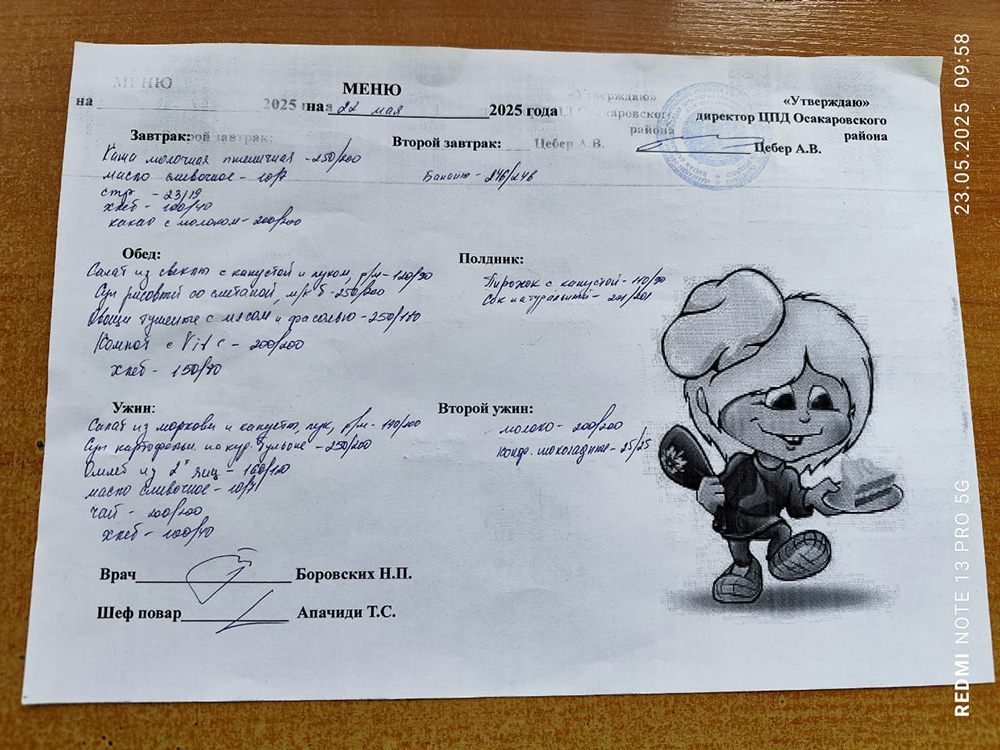 МЕНЮ
МЕНЮ
на
2025
на 22 мая 2025 года
«Утверждаю»
«Утверждаю»
директор ЦПД Осакаровского
района
района
Цебер А.В.
Цебер А.В.
Завтрак:
рой завтрак:
Каша молочная пшеничная - 250/200
масло сливочное - 10/7
сыр - 23/19
хлеб - 100/70
какао с молоком - 200/200
Второй завтрак:
246/246
Обед:
Салат из свеклы с капустой и луком, р/м - 120/90
Суп рисовый со сметаной, м/к б - 250/200
Овощи тушеные с мясом и фасолью - 250/180
Компот с Vit C - 200/200
хлеб - 150/70
Полдник:
Пирожок с капустой - 110/90
Сок натуральный - 201/201
Ужин:
Салат из моркови и капусты, лук, р/м - 140/100
Суп картофельн. на кур. бульоне - 250/200
Омлет из 2х яиц - 160/120
масло сливочное - 10/7
чай - 200/200
хлеб - 100/70
Второй ужин:
молоко - 200/200
конф. шоколадные - 25/25
Врач Боровских Н.П.
Шеф повар Апачиди Т.С.
REDMI NOTE 13 PRO 5G 23.05.2025 09:58